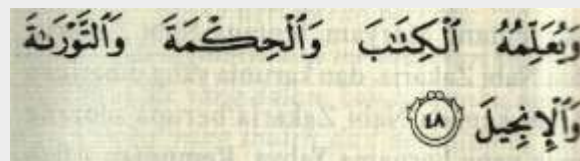 وَيُعَلِّمُهُ ٱلْكِتَٰبَ وَٱلْحِكْمَةَ وَٱلتَّوْرَىٰةَ
وَٱلْإِنجِيلَ ٤٨